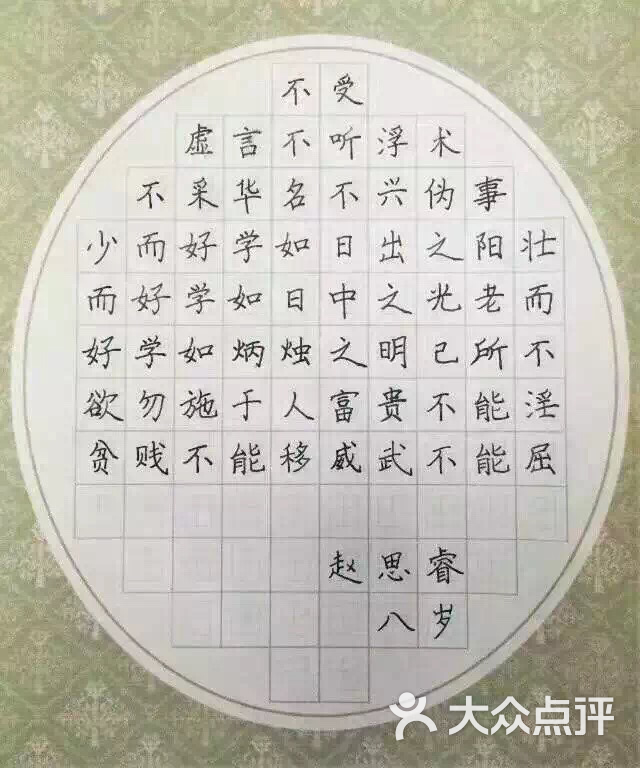 不受
虚言不听浮术
不采华名不兴伪事
少而好学如日出之阳壮
而好学如日中之光老而
好学如炳烛之明己所不
欲勿施于人富贵不能淫
贫贱不能移威武不能屈
赵思睿
八岁
大众点评